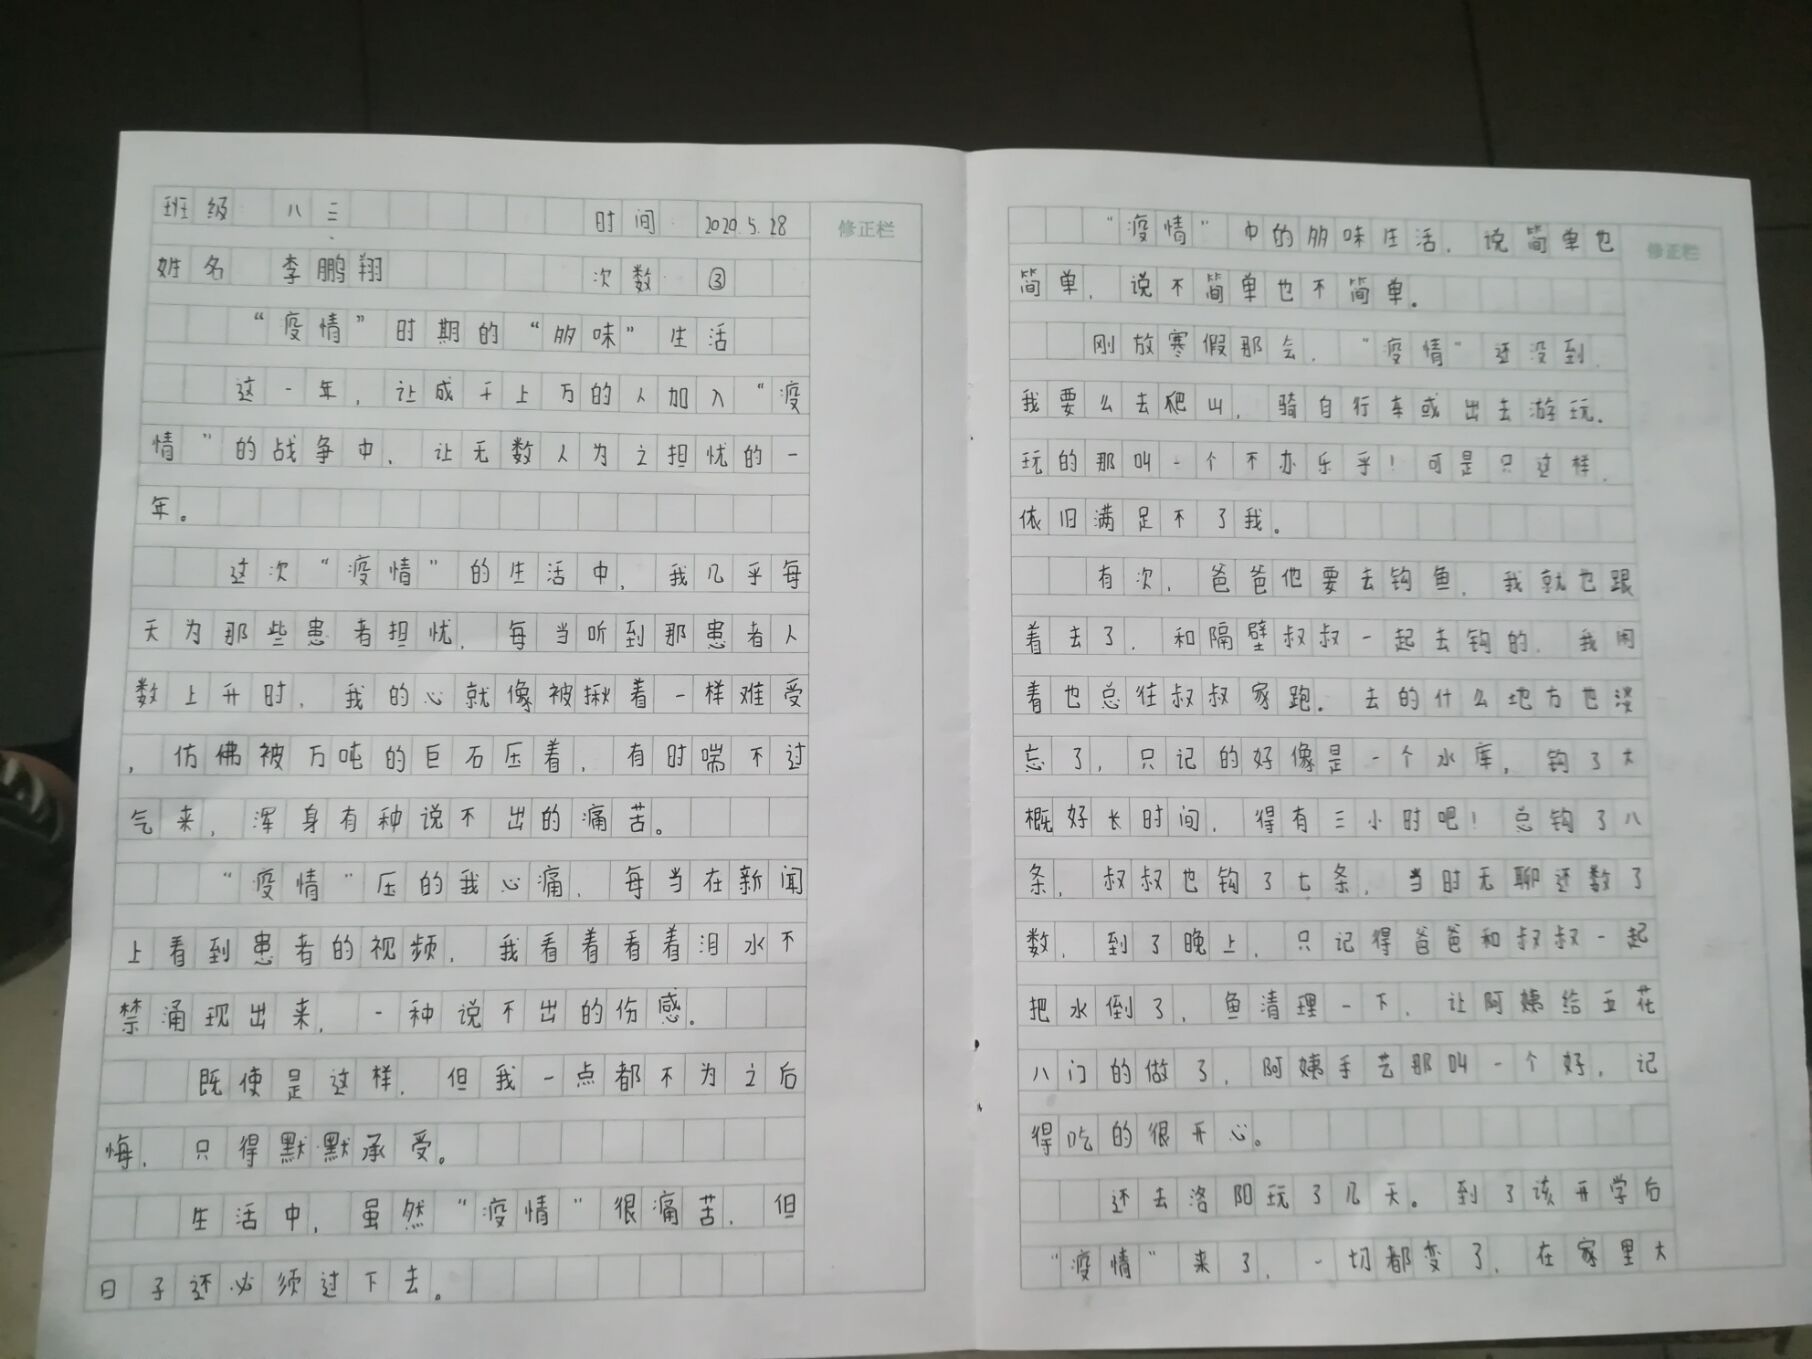 班级 八三 时间 2020.5.28
修正栏
姓名 李鹏翔 次数 ③
“疫情”时期的“多味”生活
这一年，让成千上万的人加入“疫
情”的战争中，让无数人为之担忧的一
年。
这次“疫情”的生活中，我几乎每
天为那些患者担忧，每当听到那患者人
数上升时，我的心就像被揪着一样难受
，仿佛被万吨的巨石压着，有时喘不过
气来，浑身有种说不出的痛苦。
“疫情”压的我心痛，每当在新闻
上看到患者的视频，我看着看着泪水不
禁涌现出来，一种说不出的伤感。
既使是这样，但我一点都不为之后
悔，只得默默承受。
生活中，虽然“疫情”很痛苦，但
日子还必须过下去。
“疫情”中的多味生活，说简单也
修正栏
简单，说不简单也不简单。
刚放寒假那会，“疫情”还没到，
我要么去爬山，骑自行车或出去游玩。
玩的那叫一个不亦乐乎！可是只这样，
依旧满足不了我。
有次，爸爸他要去钓鱼，我就也跟
着去了，和隔壁叔叔一起去钓的，我闲
着也总往叔叔家跑。去的什么地方也没
忘了，只记的好像是一个水库，钓了大
概好长时间，得有三小时吧！总钓了八
条，叔叔也钓了七条，当时无聊还数了
数，到了晚上，只记得爸爸和叔叔一起
把水倒了，鱼清理一下，让阿姨给五花
八门的做了，阿姨手艺那叫一个好，记
得吃的很开心。
还去洛阳玩了几天。到了该开学后
“疫情”来了，一切都变了，在家里大